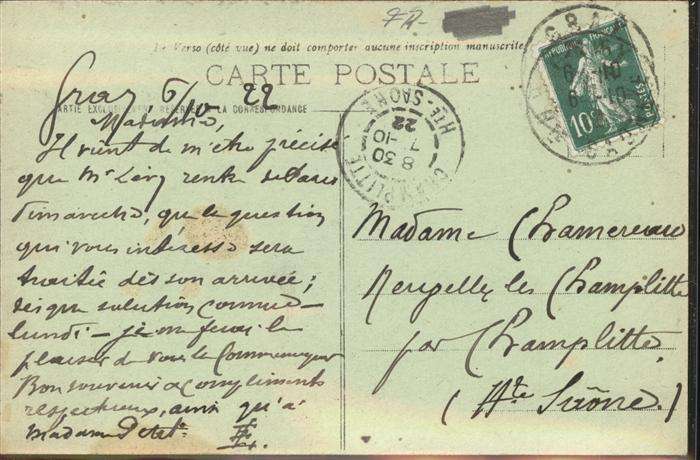 Le Verso (côté vue) ne doit comporter aucune inscription manuscrite
CARTE POSTALE
Gray, 6/10 22
PARTIE EXCLUSIVEMENT RÉSERVÉE À LA CORRESPONDANCE
Madame,
Il vient de m'être précisé
que Mr Lévy rentre de Paris
dimanche, que la question
qui vous intéresse sera
traitée dès son arrivée;
dès que solution connue -
lundi - je me ferai le
plaisir de vous le communiquer
Bon souvenir & compliments
respectueux, ainsi qu'à
Madame
CHAMPLITTE
8 30
7 -10
22
Hte-SAONE
GRAY
6 -10
REPUBLIQUE FRANÇAISE
POSTES
10
Madame Chamereau
Neuvelle les Champlitte
par Champlitte
(Hte Saône)